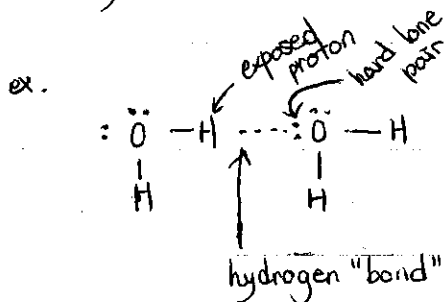 ex.
exposed
proton
hard lone
pair
: Ö — H ----- : Ö — H
H H
hydrogen "bond"